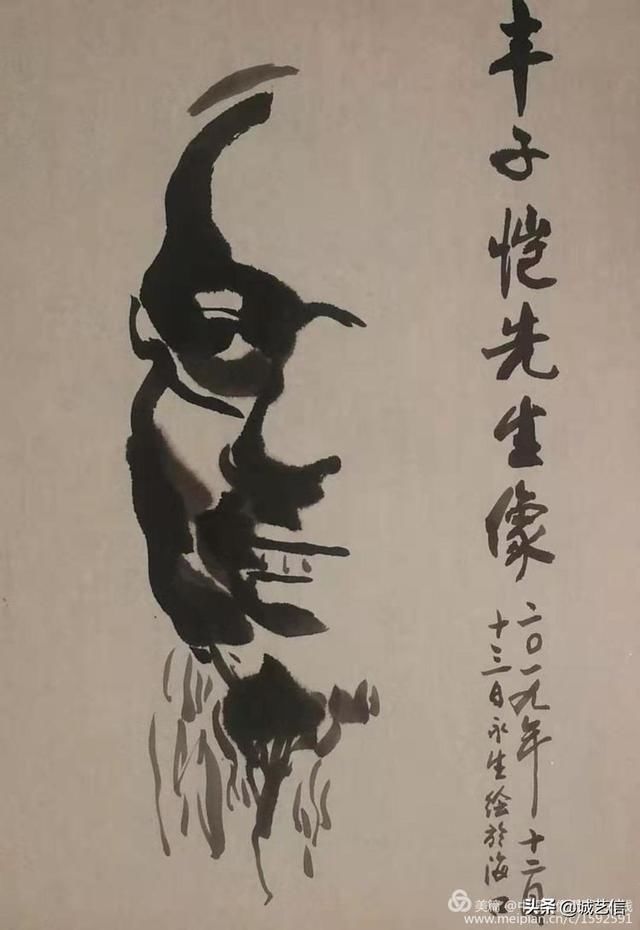 丰子恺先生像
二〇一九年十二月
十三日永生绘於海口
美篇 @中
头条 @诚艺信
www.meipian.cn/c/1592591